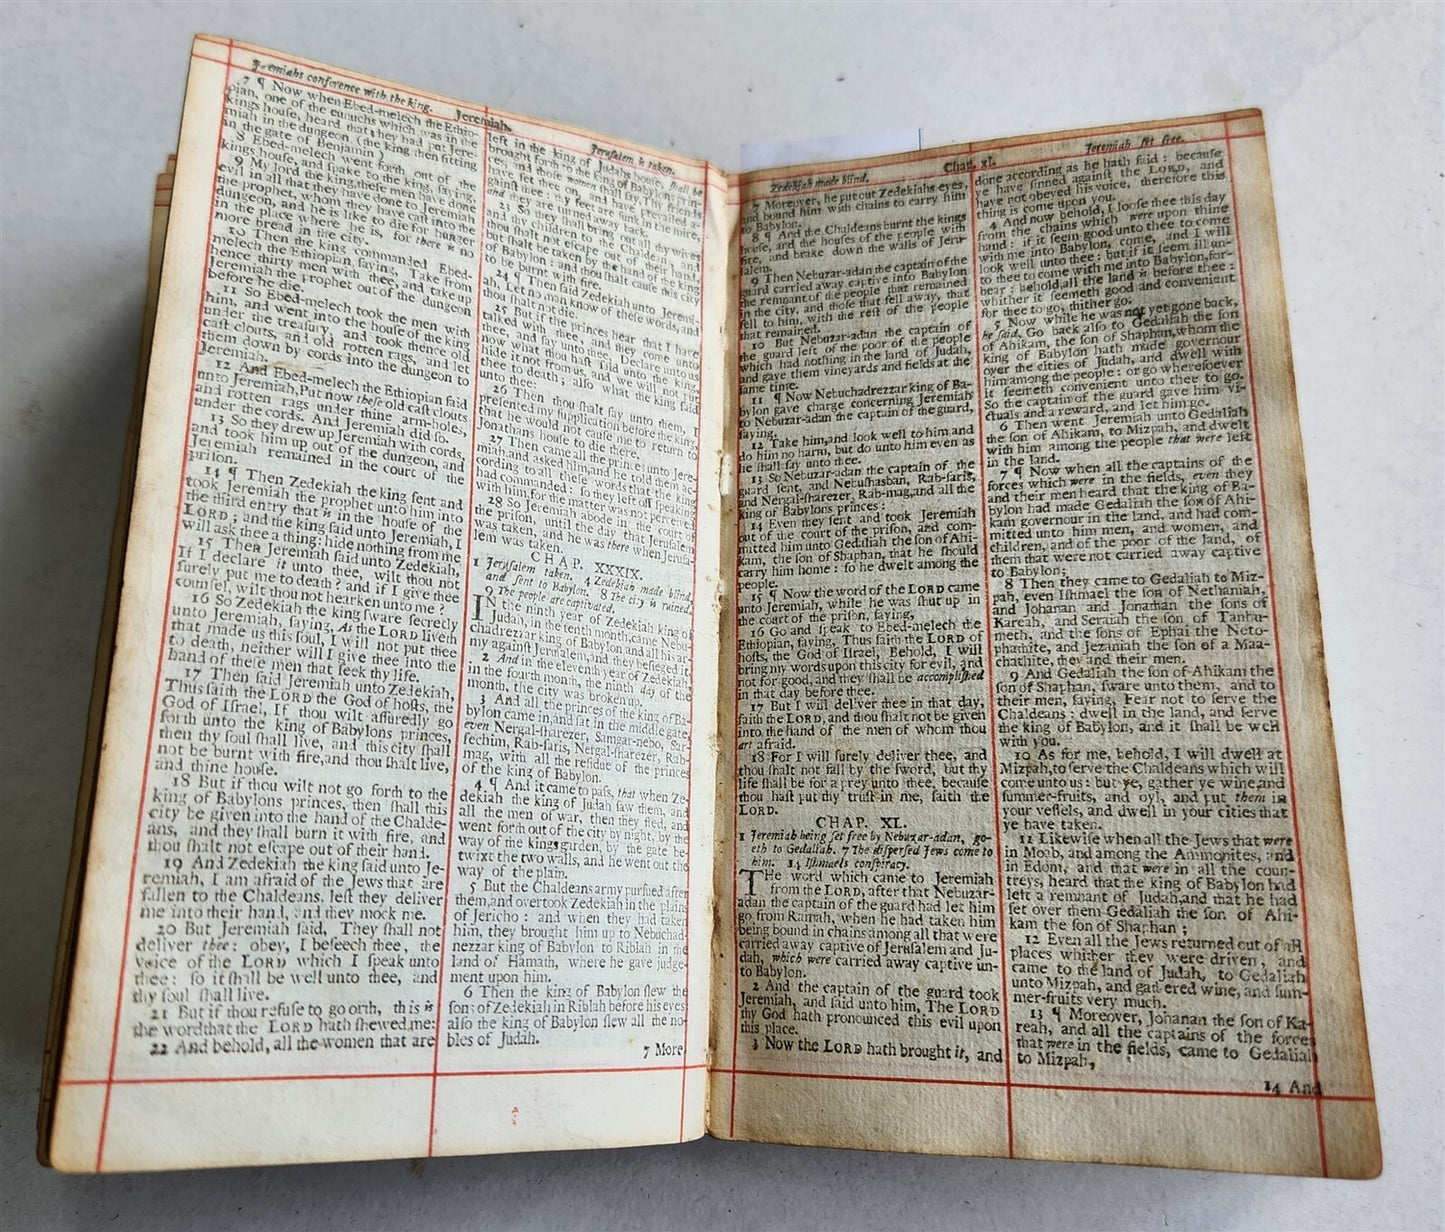 Jeremiahs conference with the king. Jeremiah. Jerusalem is taken.
7 ¶ Now when Ebed-melech the Ethio-
pian, one of the eunuchs which was in the
kings houſe, heard that they had put Jere-
miah in the dungeon (the king then ſitting
in the gate of Benjamin)
8 Ebed-melech went forth out of the
kings houſe, and ſpake to the king, ſaying,
9 My lord the king, theſe men have done
evil in all that they have done to Jeremiah
the prophet, whom they have caſt into the
dungeon, and he is like to die for hunger
in the place where he is, for there is no
more bread in the city.
10 Then the king commanded Ebed-
melech the Ethiopian, ſaying, Take from
hence thirty men with thee, and take up
Jeremiah the prophet out of the dungeon
before he die.
11 So Ebed-melech took the men with
him, and went into the houſe of the king
under the treaſury, and took thence old
caſt clouts, and old rotten rags, and let
them down by cords into the dungeon to
Jeremiah.
12 And Ebed-melech the Ethiopian ſaid
unto Jeremiah, Put now theſe old caſt clouts
and rotten rags under thine arm-holes,
under the cords. And Jeremiah did ſo.
13 So they drew up Jeremiah with cords,
and took him up out of the dungeon, and
Jeremiah remained in the court of the
priſon.
14 ¶ Then Zedekiah the king ſent and
took Jeremiah the prophet unto him into
the third entry that is in the houſe of the
LORD; and the king ſaid unto Jeremiah, I
will ask thee a thing: hide nothing from me
15 Then Jeremiah ſaid unto Zedekiah,
If I declare it unto thee, wilt thou not
ſurely put me to death? and if I give thee
counſel, wilt thou not hearken unto me?
16 So Zedekiah the king ſware ſecretly
unto Jeremiah, ſaying, As the LORD liveth
that made us this ſoul, I will not put thee
to death, neither will I give thee into the
hand of theſe men that ſeek thy life.
17 Then ſaid Jeremiah unto Zedekiah,
Thus ſaith the LORD the God of hoſts, the
God of Iſrael, If thou wilt aſſuredly go
forth unto the king of Babylons princes,
then thy ſoul ſhall live, and this city ſhall
not be burnt with fire, and thou ſhalt live,
and thine houſe.
18 But if thou wilt not go forth to the
king of Babylons princes, then ſhall this
city be given into the hand of the Chalde-
ans, and they ſhall burn it with fire, and
thou ſhalt not eſcape out of their hand.
19 And Zedekiah the king ſaid unto Je-
remiah, I am afraid of the Jews that are
fallen to the Chaldeans, leſt they deliver
me into their hand, and they mock me.
20 But Jeremiah ſaid, They ſhall not
deliver thee: obey, I beſeech thee, the
voice of the LORD which I ſpeak unto
thee: ſo it ſhall be well unto thee, and
thy ſoul ſhall live.
21 But if thou refuſe to go orth, this is
the word that the LORD hath ſhewed me:
22 And behold, all the women that are
left in the king of Judahs houſe, ſhall be
brought forth to the king of Babylons prin-
ces, and thoſe women ſhall ſay, Thy friends
have ſet thee on, and have prevailed a-
gainſt thee: thy feet are ſunk in the mire,
and they are turned away back.
23 So they ſhall bring out all thy wives
and thy children to the Chaldeans, and
thou ſhalt not eſcape out of their hand,
but ſhalt be taken by the hand of the king
of Babylon: and thou ſhalt cauſe this city
to be burnt with fire.
24 ¶ Then ſaid Zedekiah unto Jeremi-
ah, Let no man know of theſe words, and
thou ſhalt not die.
25 But if the princes hear that I have
talked with thee, and they come unto
thee, and ſay unto thee, Declare unto us
now what thou haſt ſaid unto the king,
hide it not from us, and we will not put
thee to death; alſo what the king ſaid
unto thee:
26 Then thou ſhalt ſay unto them, I
preſented my ſupplication before the king,
that he would not cauſe me to return to
Jonathans houſe to die there.
27 Then came all the princes unto Jere-
miah, and asked him, and he told them ac-
cording to all theſe words that the king
had commanded: ſo they left off ſpeaking
with him, for the matter was not perceived
28 So Jeremiah abode in the court of
the priſon, until the day that Jeruſalem
was taken, and he was there when Jeruſa-
lem was taken.
CHAP. XXXIX.
1 Jeruſalem taken. 4 Zedekiah made blind,
and ſent to Babylon. 8 The city is ruined,
9 The people are captivated.
IN the ninth year of Zedekiah king of
Judah, in the tenth month, came Nebu-
chadrezzar king of Babylon and all his ar-
my againſt Jeruſalem, and they beſieged it.
2 And in the eleventh year of Zedekiah,
in the fourth month, the ninth day of the
month, the city was broken up.
3 And all the princes of the king of Ba-
bylon came in, and ſat in the middle gate,
even Nergal-ſharezer, Samgar-nebo, Sar-
ſechim, Rab-ſaris, Nergal-ſharezer, Rab-
mag, with all the reſidue of the princes
of the king of Babylon.
4 ¶ And it came to paſs, that when Ze-
dekiah the king of Judah ſaw them, and
all the men of war, then they fled, and
went forth out of the city by night, by the
way of the kings garden, by the gate be-
twixt the two walls, and he went out the
way of the plain.
5 But the Chaldeans army purſued after
them, and overtook Zedekiah in the plains
of Jericho: and when they had taken
him, they brought him up to Nebuchad-
nezzar king of Babylon to Riblah in the
land of Hamath, where he gave judge-
ment upon him.
6 Then the king of Babylon ſlew the
ſons of Zedekiah in Riblah before his eyes
alſo the king of Babylon ſlew all the no-
bles of Judah.
7 More
Zedekiah made blind. Chap. xl. Jeremiah ſet free.
7 Moreover, he put out Zedekiahs eyes,
and bound him with chains to carry him
to Babylon.
8 ¶ And the Chaldeans burnt the kings
houſe, and the houſes of the people with
fire, and brake down the walls of Jeru-
ſalem.
9 Then Nebuzar-adan the captain of the
guard carried away captive into Babylon
the remnant of the people that remained
in the city, and thoſe that fell away, that
fell to him, with the reſt of the people
that remained.
10 But Nebuzar-adan the captain of
the guard left of the poor of the people
which had nothing in the land of Judah,
and gave them vineyards and fields at the
ſame time.
11 ¶ Now Nebuchadrezzar king of Ba-
bylon gave charge concerning Jeremiah
to Nebuzar-adan the captain of the guard,
ſaying,
12 Take him, and look well to him, and
do him no harm, but do unto him even as
he ſhall ſay unto thee.
13 So Nebuzar-adan the captain of the
guard ſent, and Nebuſhasban, Rab-ſaris,
and Nergal-ſharezer, Rab-mag, and all the
king of Babylons princes:
14 Even they ſent and took Jeremiah
out of the court of the priſon, and com-
mitted him unto Gedaliah the ſon of Ahi-
kam, the ſon of Shaphan, that he ſhould
carry him home: ſo he dwelt among the
people.
15 ¶ Now the word of the LORD came
unto Jeremiah, while he was ſhut up in
the court of the priſon, ſaying,
16 Go and ſpeak to Ebed-melech the
Ethiopian, ſaying, Thus ſaith the LORD of
hoſts, the God of Iſrael, Behold, I will
bring my words upon this city for evil, and
not for good, and they ſhall be accompliſhed
in that day before thee.
17 But I will deliver thee in that day,
ſaith the LORD, and thou ſhalt not be given
into the hand of the men of whom thou
art afraid.
18 For I will ſurely deliver thee, and
thou ſhalt not fall by the ſword, but thy
life ſhall be for a prey unto thee, becauſe
thou haſt put thy truſt in me, ſaith the
LORD.
CHAP. XL.
1 Jeremiah being ſet free by Nebuzar-adan, go-
eth to Gedaliah. 7 The diſperſed Jews come to
him. 14 Iſhmaels conſpiracy.
THe word which came to Jeremiah
from the LORD, after that Nebuzar-
adan the captain of the guard had let him
go from Ramah, when he had taken him
being bound in chains among all that were
carried away captive of Jeruſalem and Ju-
dah, which were carried away captive un-
to Babylon.
2 And the captain of the guard took
Jeremiah, and ſaid unto him, The LORD
thy God hath pronounced this evil upon
this place.
3 Now the LORD hath brought it, and
done according as he hath ſaid: becauſe
ye have ſinned againſt the LORD, and
have not obeyed his voice, therefore this
thing is come upon you.
4 And now behold, I looſe thee this day
from the chains which were upon thine
hand: if it ſeem good unto thee to come
with me into Babylon, come, and I will
look well unto thee: but if it ſeem ill un-
to thee to come with me into Babylon, for-
bear: behold, all the land is before thee:
whither it ſeemeth good and convenient
for thee to go, thither go.
5 Now while he was not yet gone back,
he ſaid, Go back alſo to Gedaliah the ſon
of Ahikam, the ſon of Shaphan, whom the
king of Babylon hath made governour
over the cities of Judah, and dwell with
him among the people: or go whereſoever
it ſeemeth convenient unto thee to go.
So the captain of the guard gave him vi-
ctuals and a reward, and let him go.
6 Then went Jeremiah unto Gedaliah
the ſon of Ahikam, to Mizpah, and dwelt
with him among the people that were left
in the land.
7 ¶ Now when all the captains of the
forces which were in the fields, even they
and their men heard that the king of Ba-
bylon had made Gedaliah the ſon of Ahi-
kam governour in the land, and had com-
mitted unto him men, and women, and
children, and of the poor of the land, of
them that were not carried away captive
to Babylon;
8 Then they came to Gedaliah to Miz-
pah, even Iſhmael the ſon of Nethaniah,
and Johanan and Jonathan the ſons of
Kareah, and Seraiah the ſon of Tanhu-
meth, and the ſons of Ephai the Neto-
phathite, and Jezaniah the ſon of a Maa-
chathite, they and their men.
9 And Gedaliah the ſon of Ahikam the
ſon of Shaphan, ſware unto them, and to
their men, ſaying, Fear not to ſerve the
Chaldeans: dwell in the land, and ſerve
the king of Babylon, and it ſhall be well
with you.
10 As for me, behold, I will dwell at
Mizpah, to ſerve the Chaldeans which will
come unto us: but ye, gather ye wine, and
ſummer-fruits, and oyl, and put them in
your veſſels, and dwell in your cities that
ye have taken.
11 Likewiſe when all the Jews that were
in Moab, and among the Ammonites, and
in Edom, and that were in all the coun-
treys, heard that the king of Babylon had
left a remnant of Judah, and that he had
ſet over them Gedaliah the ſon of Ahi-
kam the ſon of Shaphan;
12 Even all the Jews returned out of all
places whither they were driven, and
came to the land of Judah, to Gedaliah
unto Mizpah, and gathered wine, and ſum-
mer-fruits very much.
13 ¶ Moreover, Johanan the ſon of Ka-
reah, and all the captains of the forces
that were in the fields, came to Gedaliah
to Mizpah,
14 And